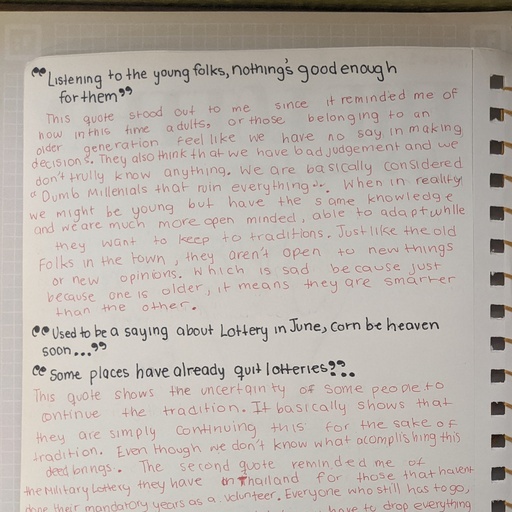 "Listening to the young folks, nothing's good enough
for them"
This quote stood out to me since it reminded me of
how in this time adults, or those belonging to an
older generation feel like we have no say in making
decisions. They also think that we have bad judgement and we
don't trully know anything. We are basically considered
"Dumb Millenials that ruin everything". When in reality
we might be young but have the same knowledge
and we are much more open minded, able to adapt while
they want to keep to traditions. Just like the old
folks in the town, they aren't open to new things
or new opinions. Which is sad because just
because one is older, it means they are smarter
than the other.
"Used to be a saying about Lottery in June, corn be heaven
soon..."
"Some places have already quit lotteries".
This quote shows the uncertainty of some people to
continue the tradition. It basically shows that
they are simply continuing this for the sake of
tradition. Even though we don't know what acomplishing this
deed brings. The second quote reminded me of
the Military Lottery they have in Thailand for those that havent
done their mandatory years as a volunteer. Everyone who still has to go,
have to drop everything